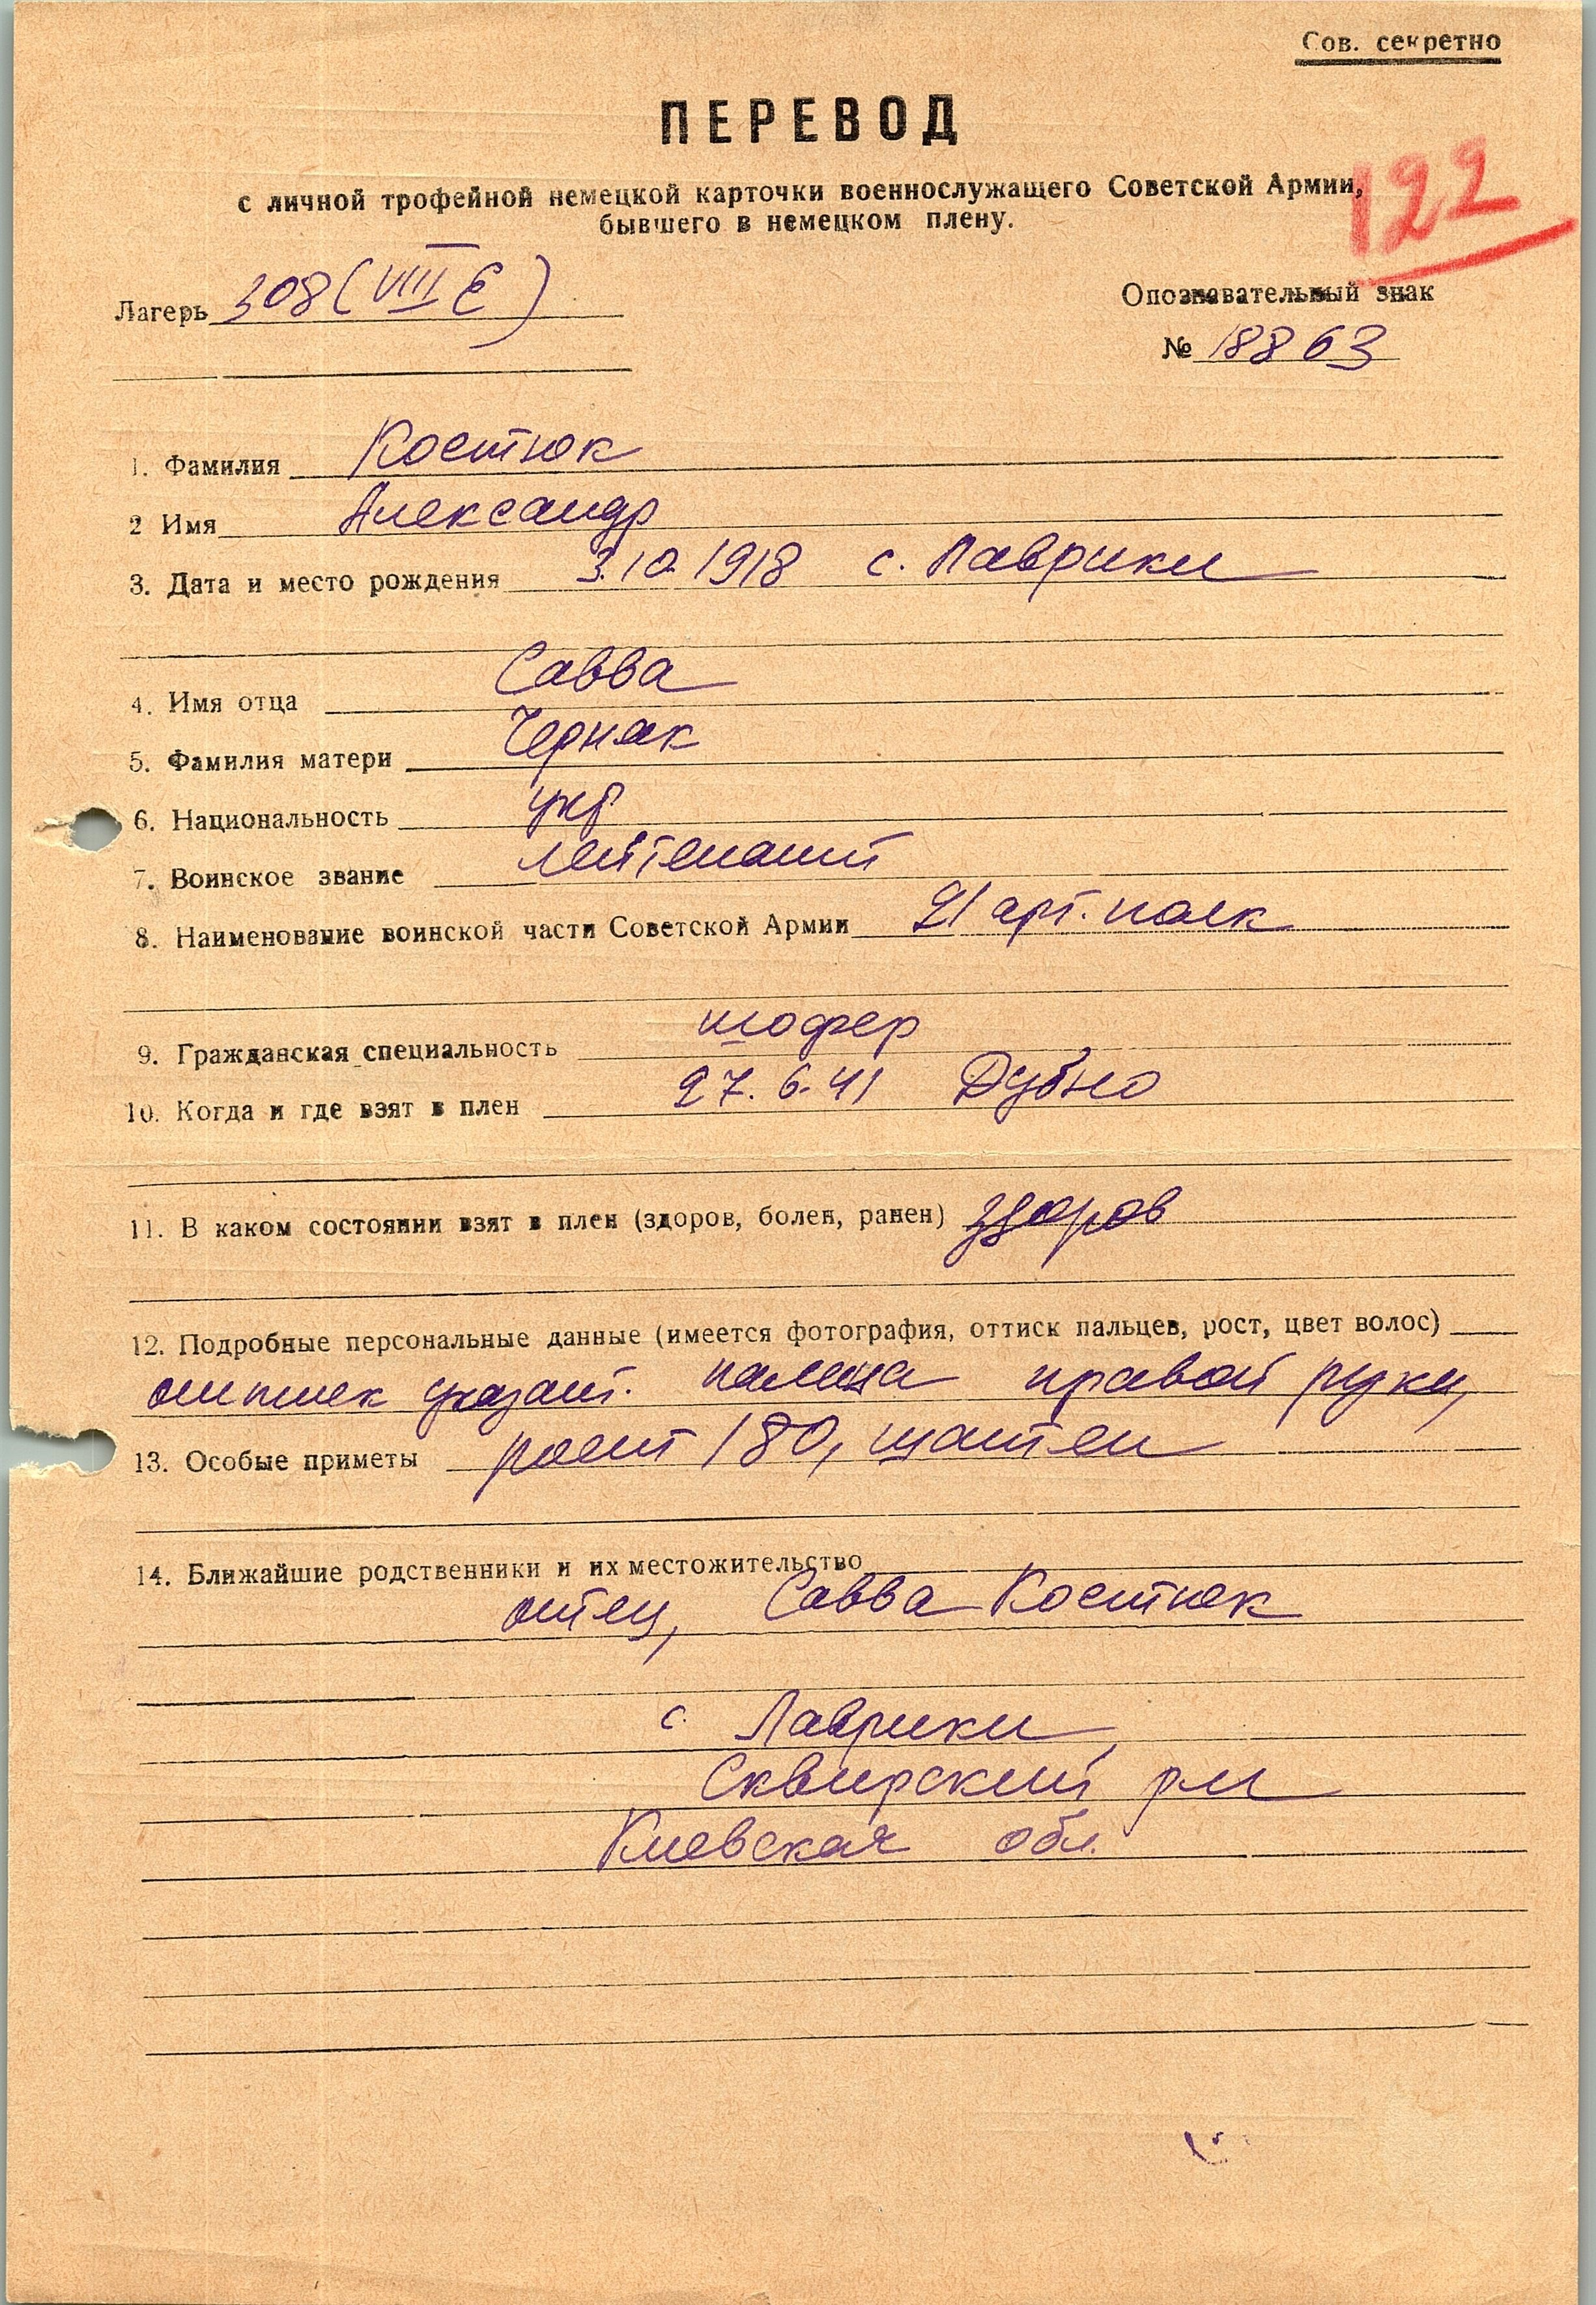 Сов. секретно
ПЕРЕВОД
122
с личной трофейной немецкой карточки военнослужащего Советской Армии,
бывшего в немецком плену.
Лагерь 308 (VIII E)
Опознавательный знак
№ 18863
1. Фамилия Костюк
2 Имя Александр
3. Дата и место рождения 3.10.1918 с. Лаврики
4. Имя отца Савва
5. Фамилия матери Черняк
6. Национальность укр
7. Воинское звание лейтенант
8. Наименование воинской части Советской Армии 21 арт. полк
9. Гражданская специальность шофер
10. Когда и где взят в плен 27.6.41 Дубно
11. В каком состоянии взят в плен (здоров, болен, ранен) здоров
12. Подробные персональные данные (имеется фотография, оттиск пальцев, рост, цвет волос)
оттиск указат. пальца правой руки,
13. Особые приметы рост 180, шатен
14. Ближайшие родственники и их местожительство
отец, Савва Костюк
с. Лаврики,
Сквирский р-н
Киевская обл.